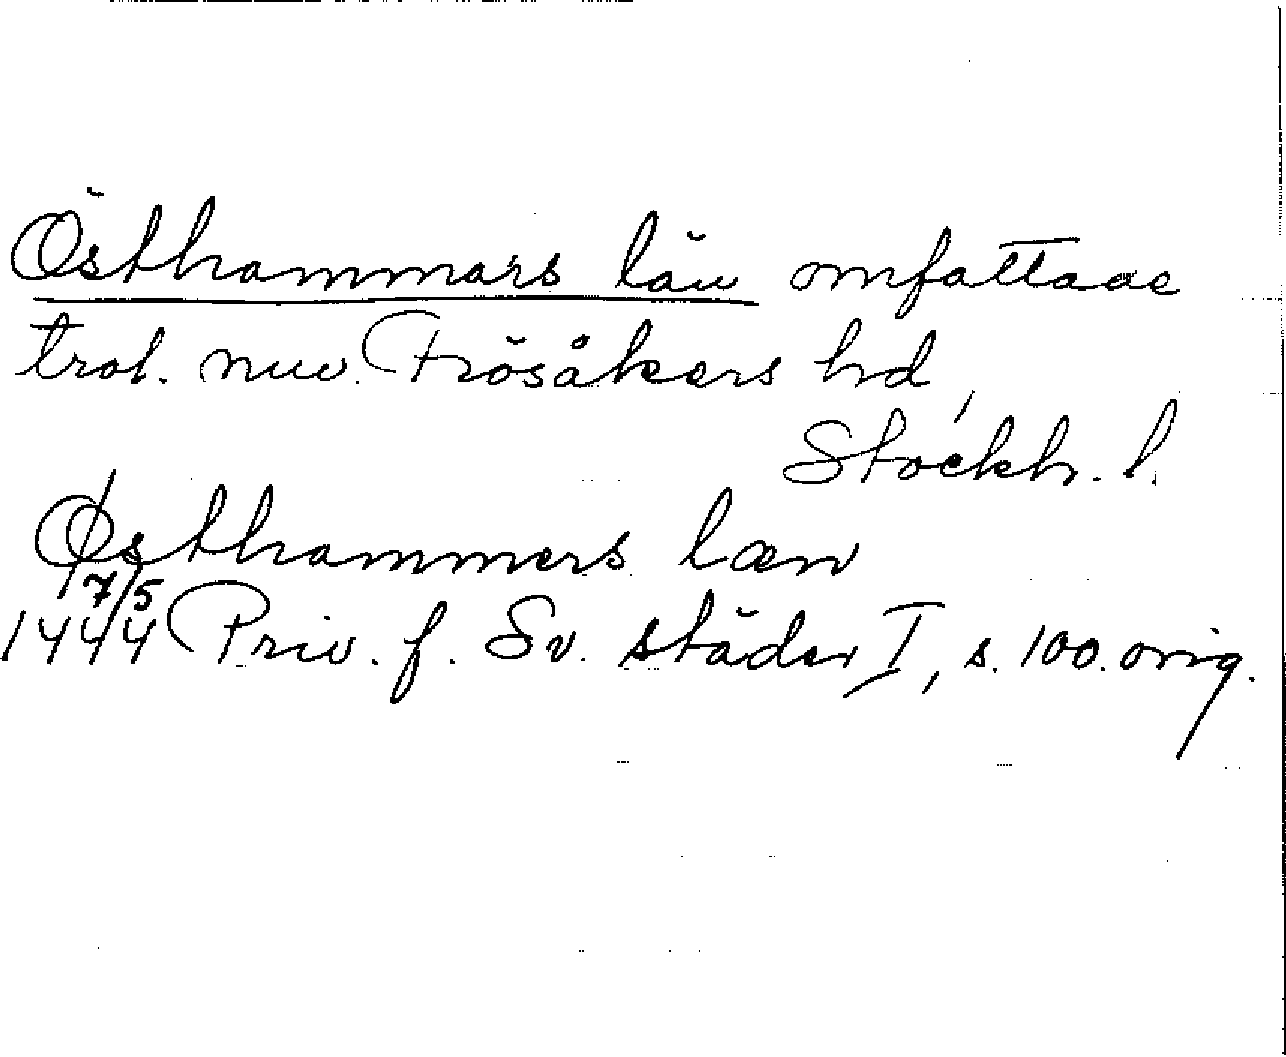 Östhammars län omfattade
trol. nuv. Frösåkers hd,
Stockh. l.
Østhammers læn
17/5
1444 Priv. f. Sv. städer I, s. 100. orig.